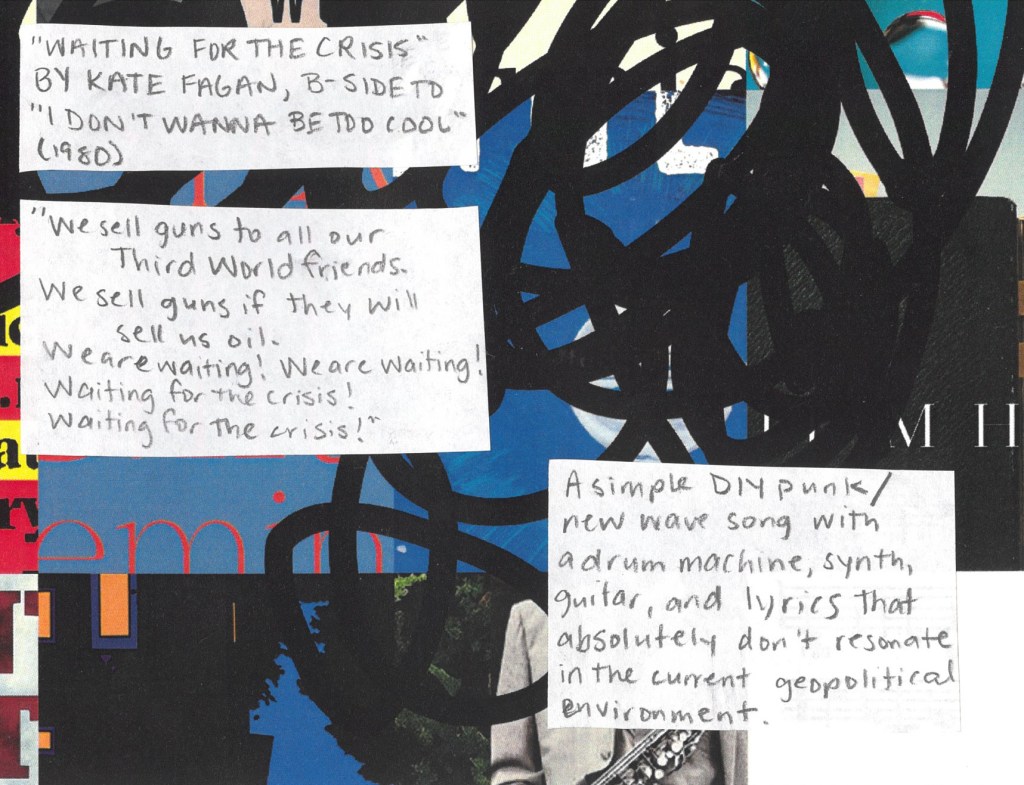 W
"WAITING FOR THE CRISIS"
BY KATE FAGAN, B-SIDE TO
"I DON'T WANNA BE TOO COOL"
(1980)
"We sell guns to all our
Third World friends.
We sell guns if they will
sell us oil.
We are waiting! We are waiting!
Waiting for the crisis!
Waiting for the crisis!"
emin
M H
A simple DIY punk/
new wave song with
a drum machine, synth,
guitar, and lyrics that
absolutely don't resonate
in the current geopolitical
environment.